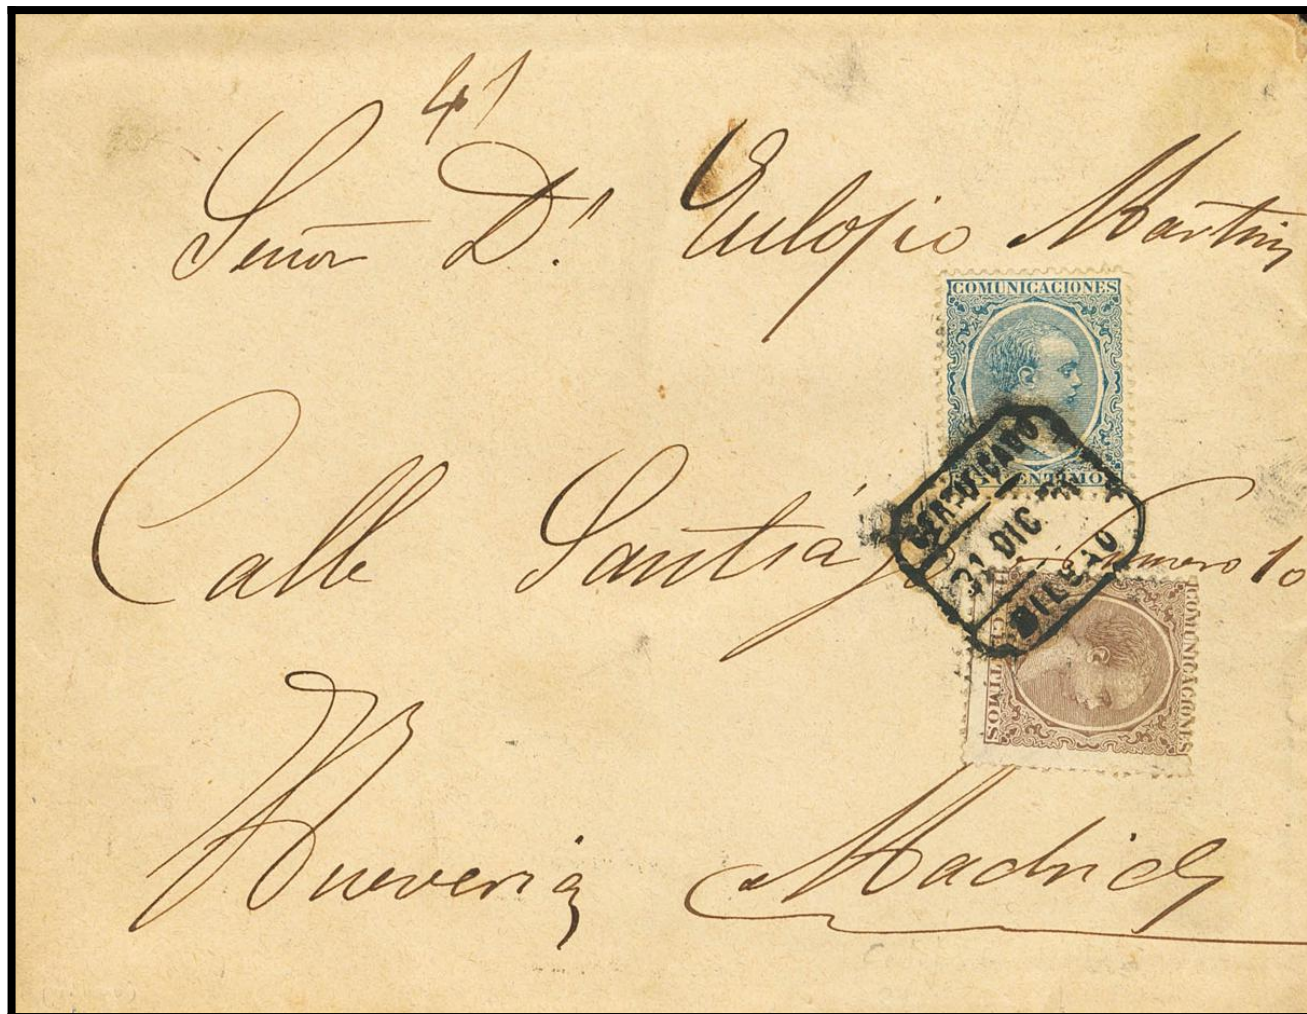 41
Señor D.ⁿ Eulogio Martin
COMUNICACIONES
CERTIFICADO
31 DIC
BILBAO
Calle Santiago numero 10
COMUNICACIONES
CENTIMOS
Hueveria Madrid